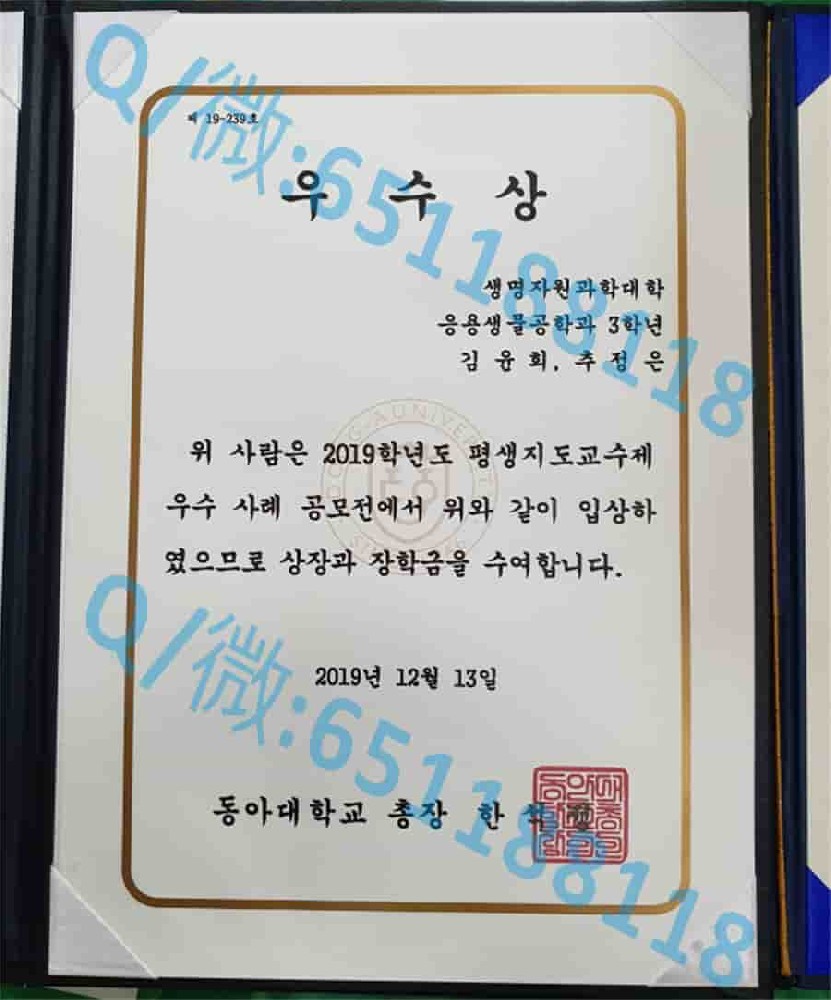 제 19-239호
우 수 상
생명자원과학대학
응용생물공학과 3학년
김 윤 희, 추 정 은
위 사람은 2019학년도 평생지도교수제
우수 사례 공모전에서 위와 같이 입상하
였으므로 상장과 장학금을 수여합니다.
2019년 12월 13일
동아대학교 총장 한
Q/微:651188118
Q/微:651188118